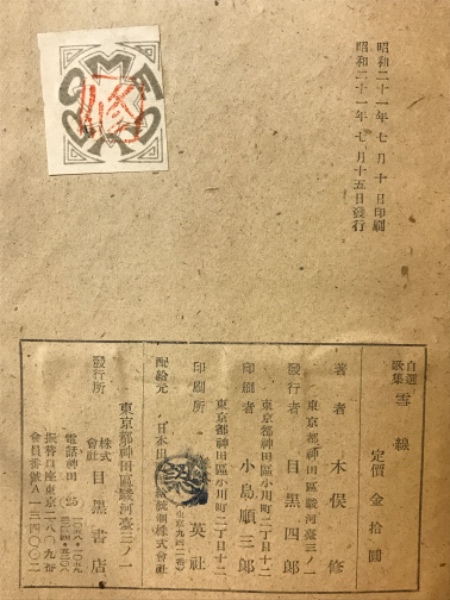 昭和二十一年七月十日印刷
昭和二十一年七月十五日發行
自選歌集 雪線
定價金拾圓
著者 木俣修
東京都神田區駿河臺三ノ一
發行者 目黑四郎
東京都神田區小川町二丁目十二
印刷者 小島順三郎
東京都神田區小川町二丁目十二
印刷所 英社
配給元 日本出 統制株式會社
東京都神田區駿河臺三ノ一
發行所 株式會社 目黑書店
電話神田
振替口座東京二八〇九番
會員番號A一三四〇〇二
修